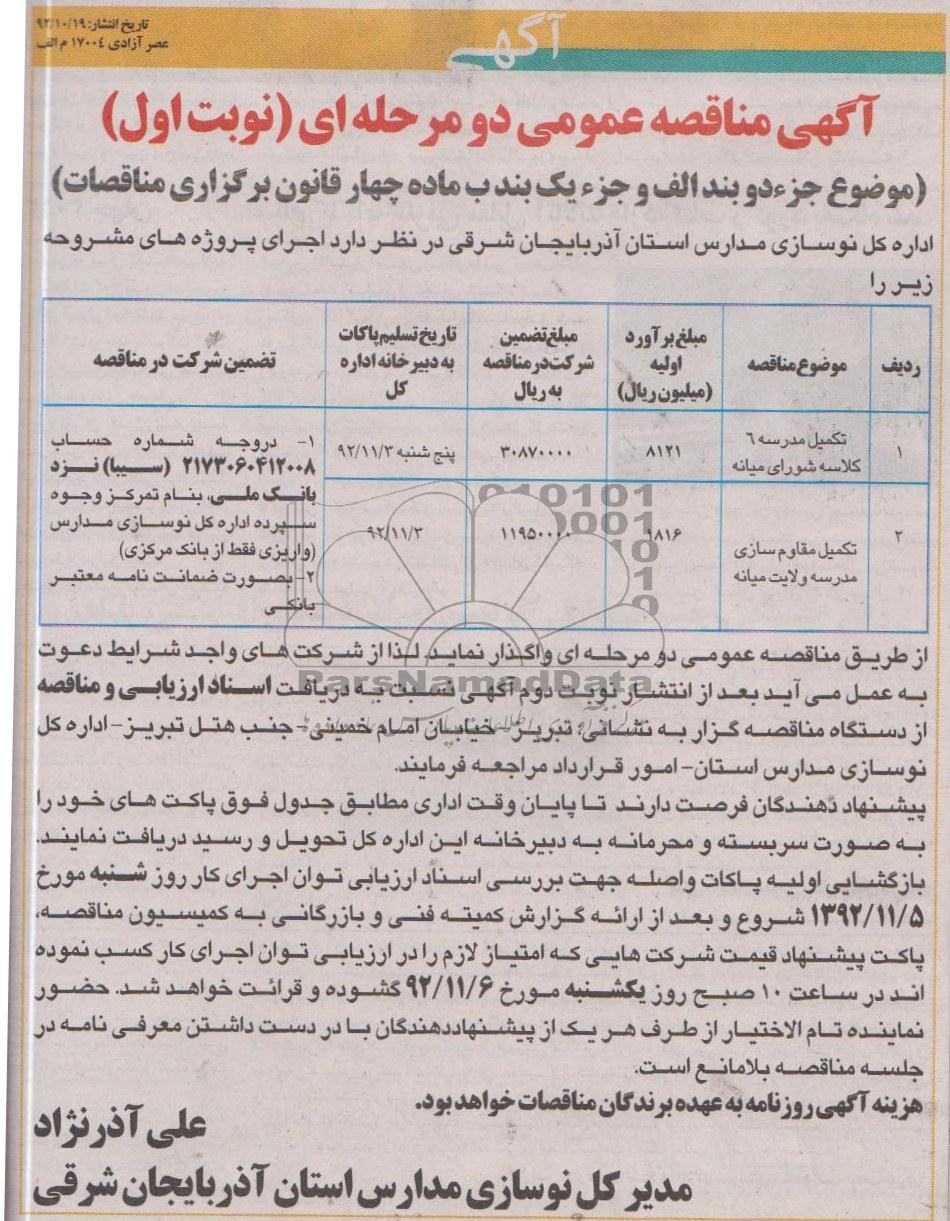 تاریخ انتشار: ۹۲/۱۰/۱۹
عصر آزادی ۱۷۰۰۴ م الف
آگهی
آگهی مناقصه عمومی دو مرحله ای (نوبت اول)
(موضوع جزء دو بند الف و جزء یک بند ب ماده چهار قانون برگزاری مناقصات)
اداره کل نوسازی مدارس استان آذربایجان شرقی در نظر دارد اجرای پروژه های مشروحه
زیر را
ردیف
موضوع مناقصه
مبلغ برآورد
اولیه
(میلیون ریال)
مبلغ تضمین
شرکت در مناقصه
به ریال
تاریخ تسلیم پاکات
به دبیرخانه اداره
کل
تضمین شرکت در مناقصه
۱
تکمیل مدرسه ۶
کلاسه شورای میانه
۸۱۲۱
۳۰۸۷۰۰۰۰
پنج شنبه ۹۲/۱۱/۳
۲
تکمیل مقاوم سازی
مدرسه ولایت میانه
۹۸۱۶
۱۱۹۵۰۰۰۰
۹۲/۱۱/۳
۱- دروجه شماره حساب
۲۱۷۳۰۶۰۴۱۲۰۰۸ (سیبا) نزد
بانک ملی، بنام تمرکز وجوه
سپرده اداره کل نوسازی مدارس
(واریزی فقط از بانک مرکزی)
۲- بصورت ضمانت نامه معتبر
بانکی
از طریق مناقصه عمومی دو مرحله ای واگذار نماید. لذا از شرکت های واجد شرایط دعوت
به عمل می آید بعد از انتشار نوبت دوم آگهی نسبت به دریافت اسناد ارزیابی و مناقصه
از دستگاه مناقصه گزار به نشانی: تبریز- خیابان امام خمینی- جنب هتل تبریز- اداره کل
نوسازی مدارس استان- امور قرارداد مراجعه فرمایند.
پیشنهاد دهندگان فرصت دارند تا پایان وقت اداری مطابق جدول فوق پاکت های خود را
به صورت سربسته و محرمانه به دبیرخانه این اداره کل تحویل و رسید دریافت نمایند.
بازگشایی اولیه پاکات واصله جهت بررسی اسناد ارزیابی توان اجرای کار روز شنبه مورخ
۱۳۹۲/۱۱/۵ شروع و بعد از ارائه گزارش کمیته فنی و بازرگانی به کمیسیون مناقصه،
پاکت پیشنهاد قیمت شرکت هایی که امتیاز لازم را در ارزیابی توان اجرای کار کسب نموده
اند در ساعت ۱۰ صبح روز یکشنبه مورخ ۹۲/۱۱/۶ گشوده و قرائت خواهد شد. حضور
نماینده تام الاختیار از طرف هر یک از پیشنهاددهندگان با در دست داشتن معرفی نامه در
جلسه مناقصه بلامانع است.
هزینه آگهی روزنامه به عهده برندگان مناقصات خواهد بود.
علی آذرنژاد
مدیر کل نوسازی مدارس استان آذربایجان شرقی
ParsNamadData